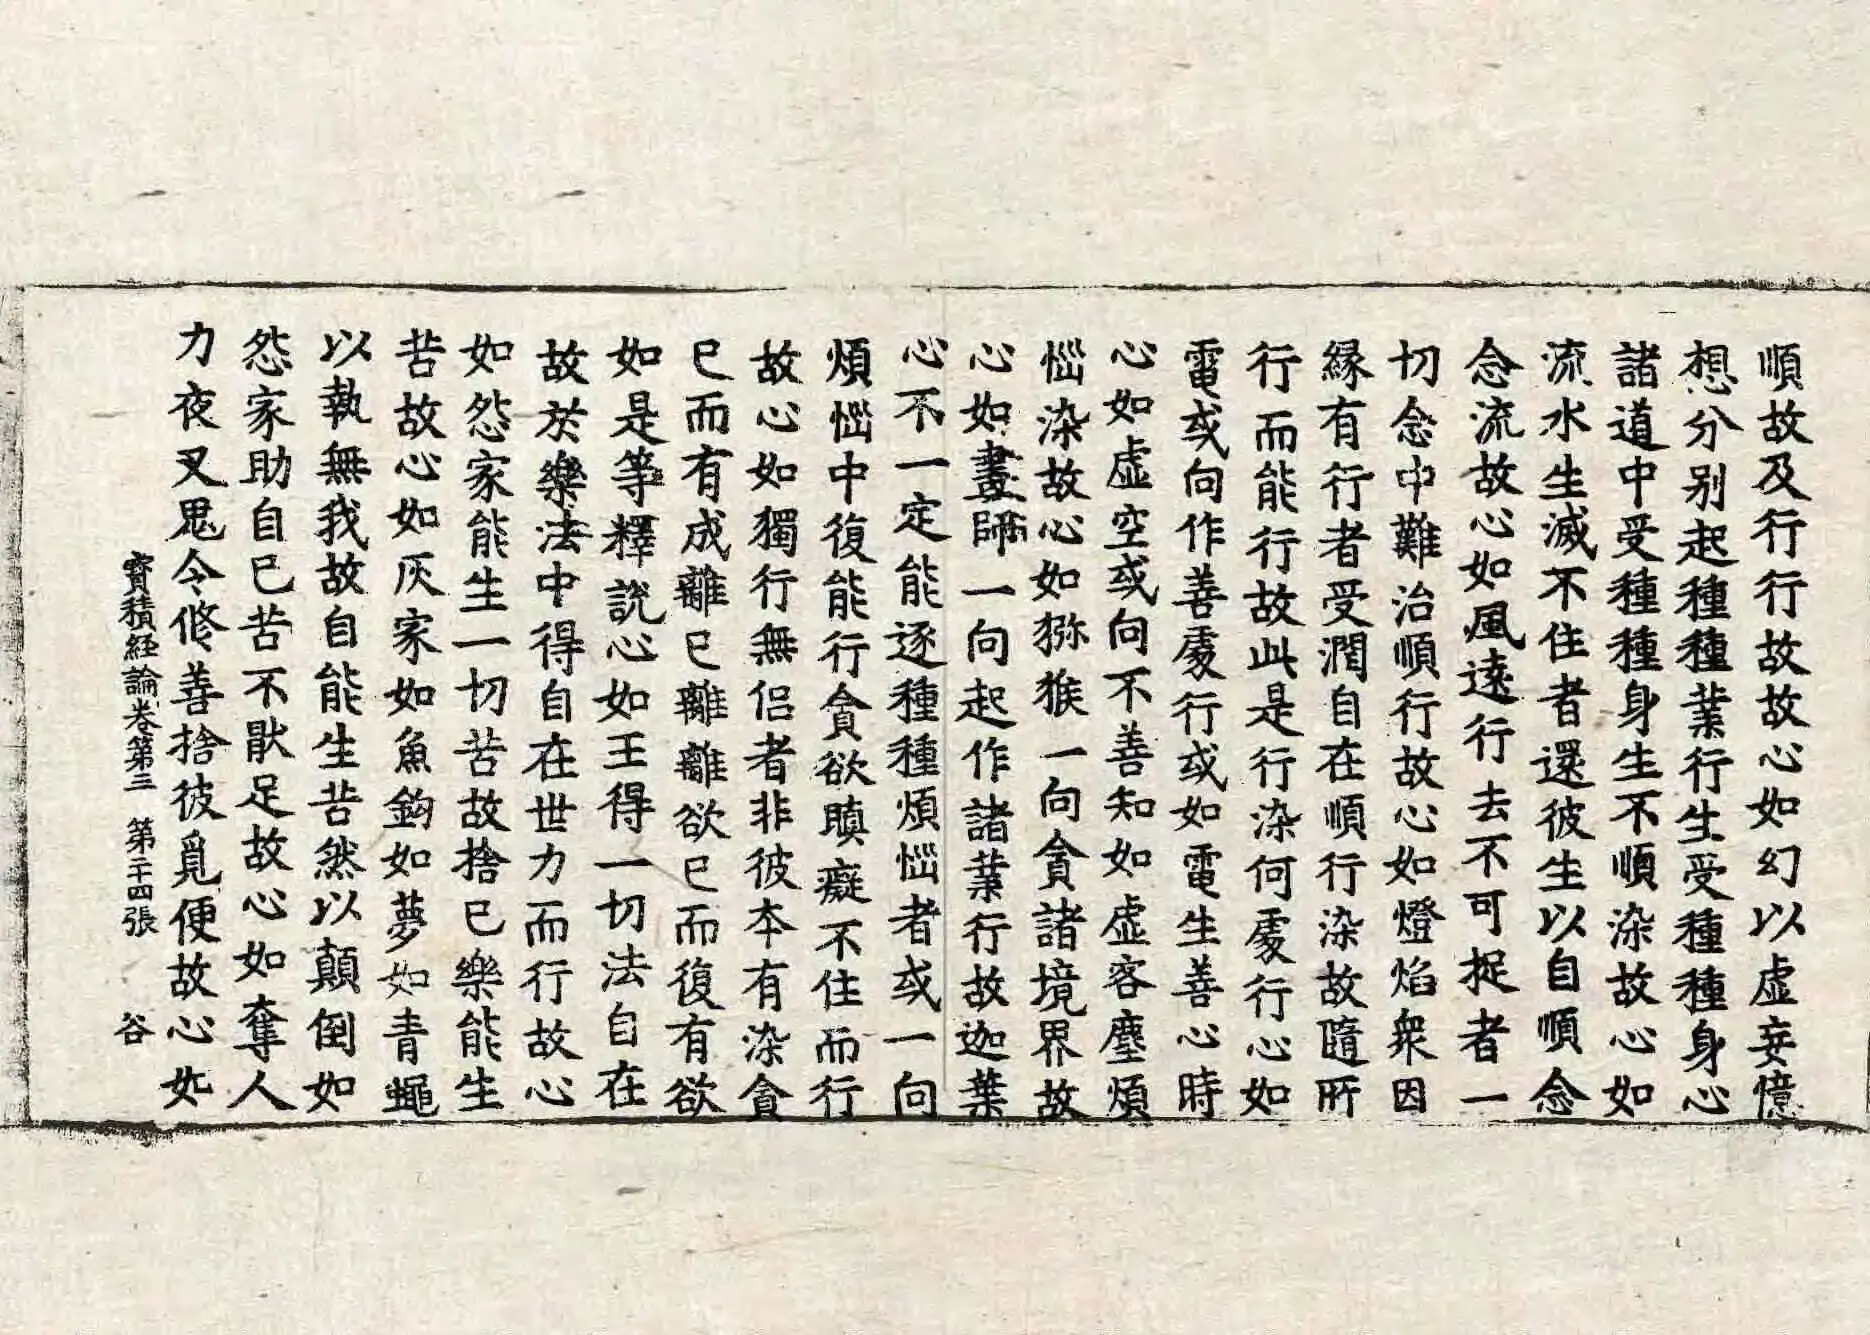 順故及行行故故心如幻以虛妄憶
想分別起種種業行生受種種身心
諸道中受種種身生不順染故心如
流水生滅不住者還彼生以自順念
念流故心如風遠行去不可捉者一
切念中難治順行故心如燈焰衆因
緣有行者受潤自在順行染故隨所
行而能行故此是行染何處行心如
電或向作善處行或如電生善心時
心如虛空或向不善知如虛客塵煩
惱染故心如猕猴一向貪諸境界故
心如畫師一向起作諸業行故迦葉
心不一定能逐種種煩惱者或一向
煩惱中復能行貪欲瞋癡不住而行
故心如獨行無侶者非彼本有染貪
已而有成離已離離欲已而復有欲
如是等釋說心如王得一切法自在
故於樂法中得自在世力而行故心
如怨家能生一切苦故捨已樂能生
苦故心如灰家如魚鉤如夢如青蠅
以執無我故自能生苦然以顛倒如
怨家助自已苦不猒足故心如奪人
力夜叉鬼令修善捨彼覓便故心如
寶積經論卷第三 第二十四張 谷